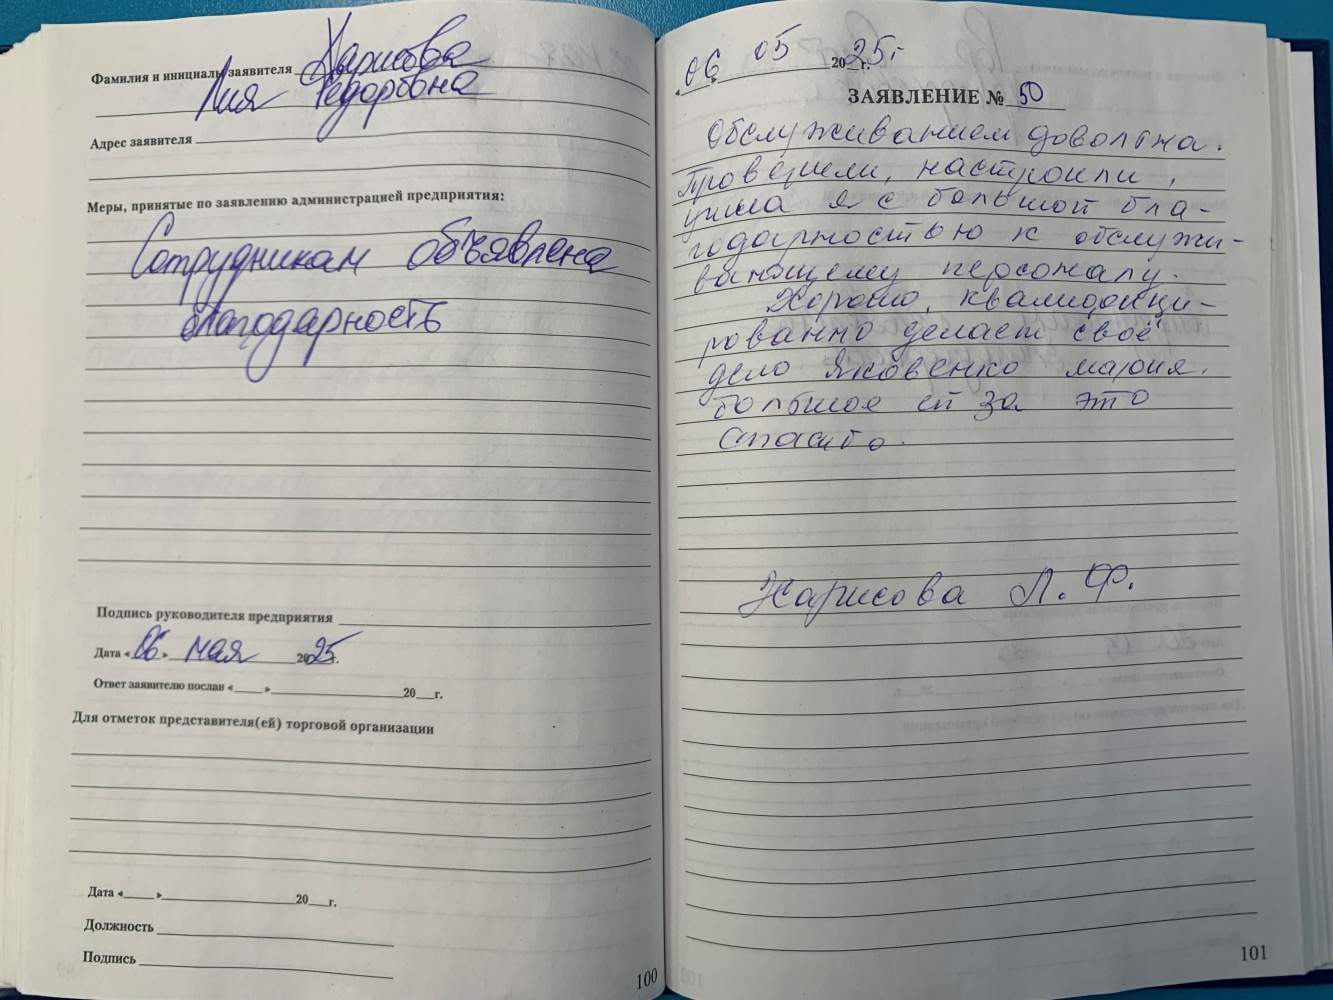 Фамилия и инициалы заявителя Харисова
Лия Федоровна
Адрес заявителя
Меры, принятые по заявлению администрацией предприятия:
Сотрудникам объявлена
благодарность
Подпись руководителя предприятия
Дата «06» мая 2025г.
Ответ заявителю послан «     » 20   г.
Для отметок представителя(ей) торговой организации
Дата «     » 20   г.
Должность
Подпись
100
06 05 2025г.
ЗАЯВЛЕНИЕ № 50
Обслуживанием довольна.
Проверили, настроили,
ушла я с большой бла-
годарностью к обслужи-
вающему персоналу.
Хорошо, квалифици-
рованно делает своё
дело Яковенко Мария.
Большое ей за это
спасибо.
Харисова Л. Ф.
101